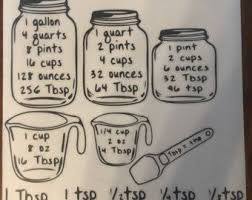 1 gallon
4 quarts
8 pints
16 cups
128 ounces
256 Tbsp
1 quart
2 pints
4 cups
32 ounces
64 Tbsp
1 pint
2 cups
32 ounces
96 tsp
1 cup
8 oz
16 Tbsp
1/4 cup
2 oz
4 Tbsp
1 Tbsp
1 tsp
1/2 tsp